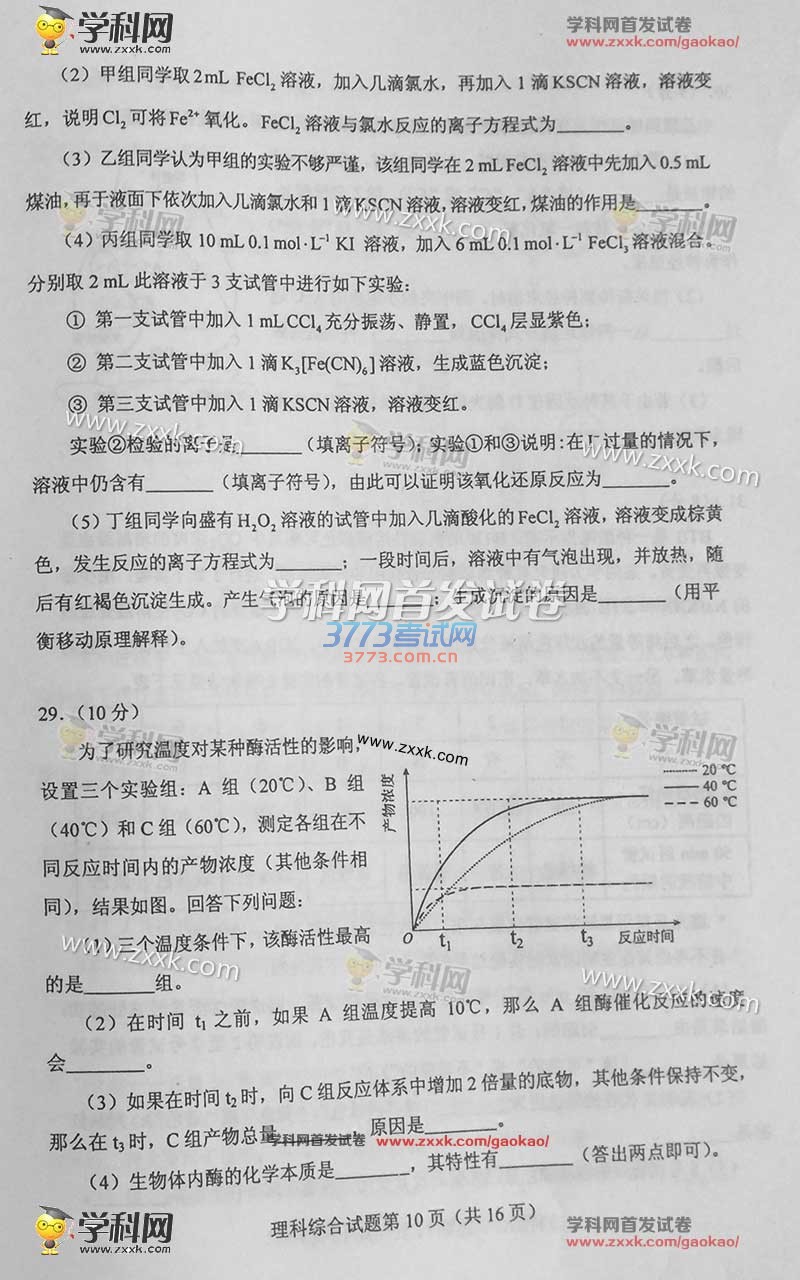 学科网
www.zxxk.com
学科网首发试卷
www.zxxk.com/gaokao/
（2）甲组同学取 2 mL FeCl₂ 溶液，加入几滴氯水，再加入 1 滴 KSCN 溶液，溶液变
红，说明 Cl₂ 可将 Fe²⁺ 氧化。FeCl₂ 溶液与氯水反应的离子方程式为______。
（3）乙组同学认为甲组的实验不够严谨，该组同学在 2 mL FeCl₂ 溶液中先加入 0.5 mL
煤油，再于液面下依次加入几滴氯水和 1 滴 KSCN 溶液，溶液变红，煤油的作用是______。
学科网
www.zxxk.com
www.zxxk.com
学科网
（4）丙组同学取 10 mL 0.1 mol·L⁻¹ KI 溶液，加入 6 mL 0.1 mol·L⁻¹ FeCl₃ 溶液混合。
分别取 2 mL 此溶液于 3 支试管中进行如下实验：
① 第一支试管中加入 1 mL CCl₄ 充分振荡、静置，CCl₄ 层显紫色；
② 第二支试管中加入 1 滴 K₃[Fe(CN)₆] 溶液，生成蓝色沉淀；
③ 第三支试管中加入 1 滴 KSCN 溶液，溶液变红。
www.zxxk.com
学科网
www.zxxk.com
实验②检验的离子是______（填离子符号）；实验①和③说明：在 I⁻ 过量的情况下，
溶液中仍含有______（填离子符号），由此可以证明该氧化还原反应为______。
（5）丁组同学向盛有 H₂O₂ 溶液的试管中加入几滴酸化的 FeCl₂ 溶液，溶液变成棕黄
色，发生反应的离子方程式为______；一段时间后，溶液中有气泡出现，并放热，随
后有红褐色沉淀生成。产生气泡的原因是______；生成沉淀的原因是______（用平
学科网首发试卷
衡移动原理解释）。
3773考试网
3773.com.cn
29.（10 分）
学科网
www.zxxk.com
学科网
www.zxxk.com
为了研究温度对某种酶活性的影响，
www.zxxk.com
设置三个实验组：A 组（20℃）、B 组
（40℃）和 C 组（60℃），测定各组在不
同反应时间内的产物浓度（其他条件相
同），结果如图。回答下列问题：
产物浓度
20 ℃
40 ℃
60 ℃
O t₁ t₂ t₃ 反应时间
（1）三个温度条件下，该酶活性最高
的是______组。
www.zxxk.com
学科网
www.zxxk.com
www.zxxk.com
（2）在时间 t₁ 之前，如果 A 组温度提高 10℃，那么 A 组酶催化反应的速度
会______。
（3）如果在时间 t₂ 时，向 C 组反应体系中增加 2 倍量的底物，其他条件保持不变，
那么在 t₃ 时，C 组产物总量______，原因是______。
学科网首发试卷 www.zxxk.com/gaokao/
（4）生物体内酶的化学本质是______，其特性有______（答出两点即可）。
学科网
www.zxxk.com
理科综合试题第 10 页（共 16 页）
学科网首发试卷
www.zxxk.com/gaokao/